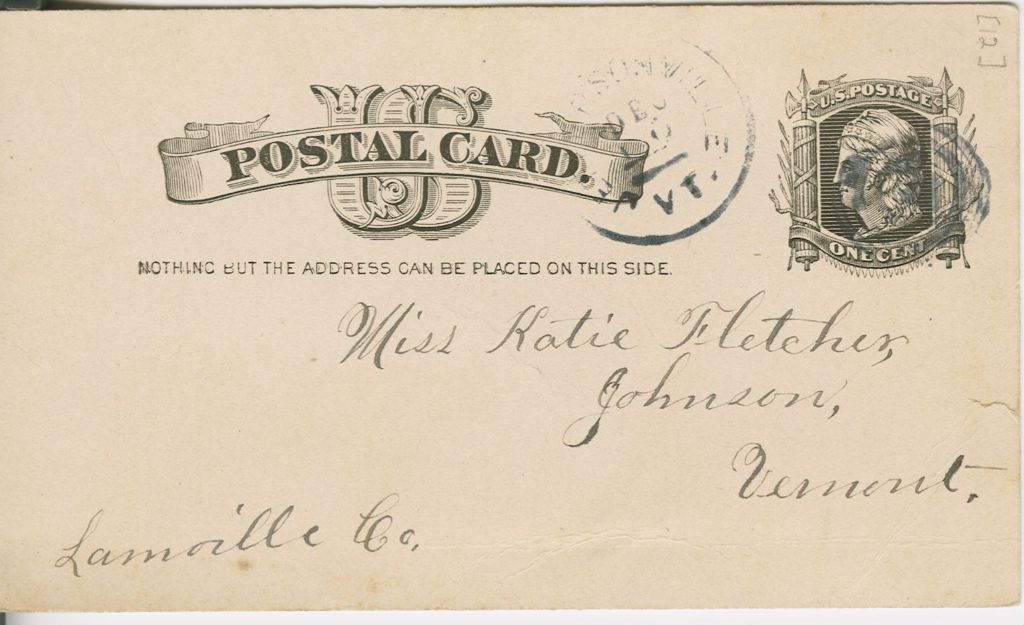 [12]
US
POSTAL CARD.
U.S. POSTAGE
ONE CENT
DEC
VT.
NOTHING BUT THE ADDRESS CAN BE PLACED ON THIS SIDE.
Miss Katie Fletcher,
Johnson,
Vermont.
Lamoille Co.